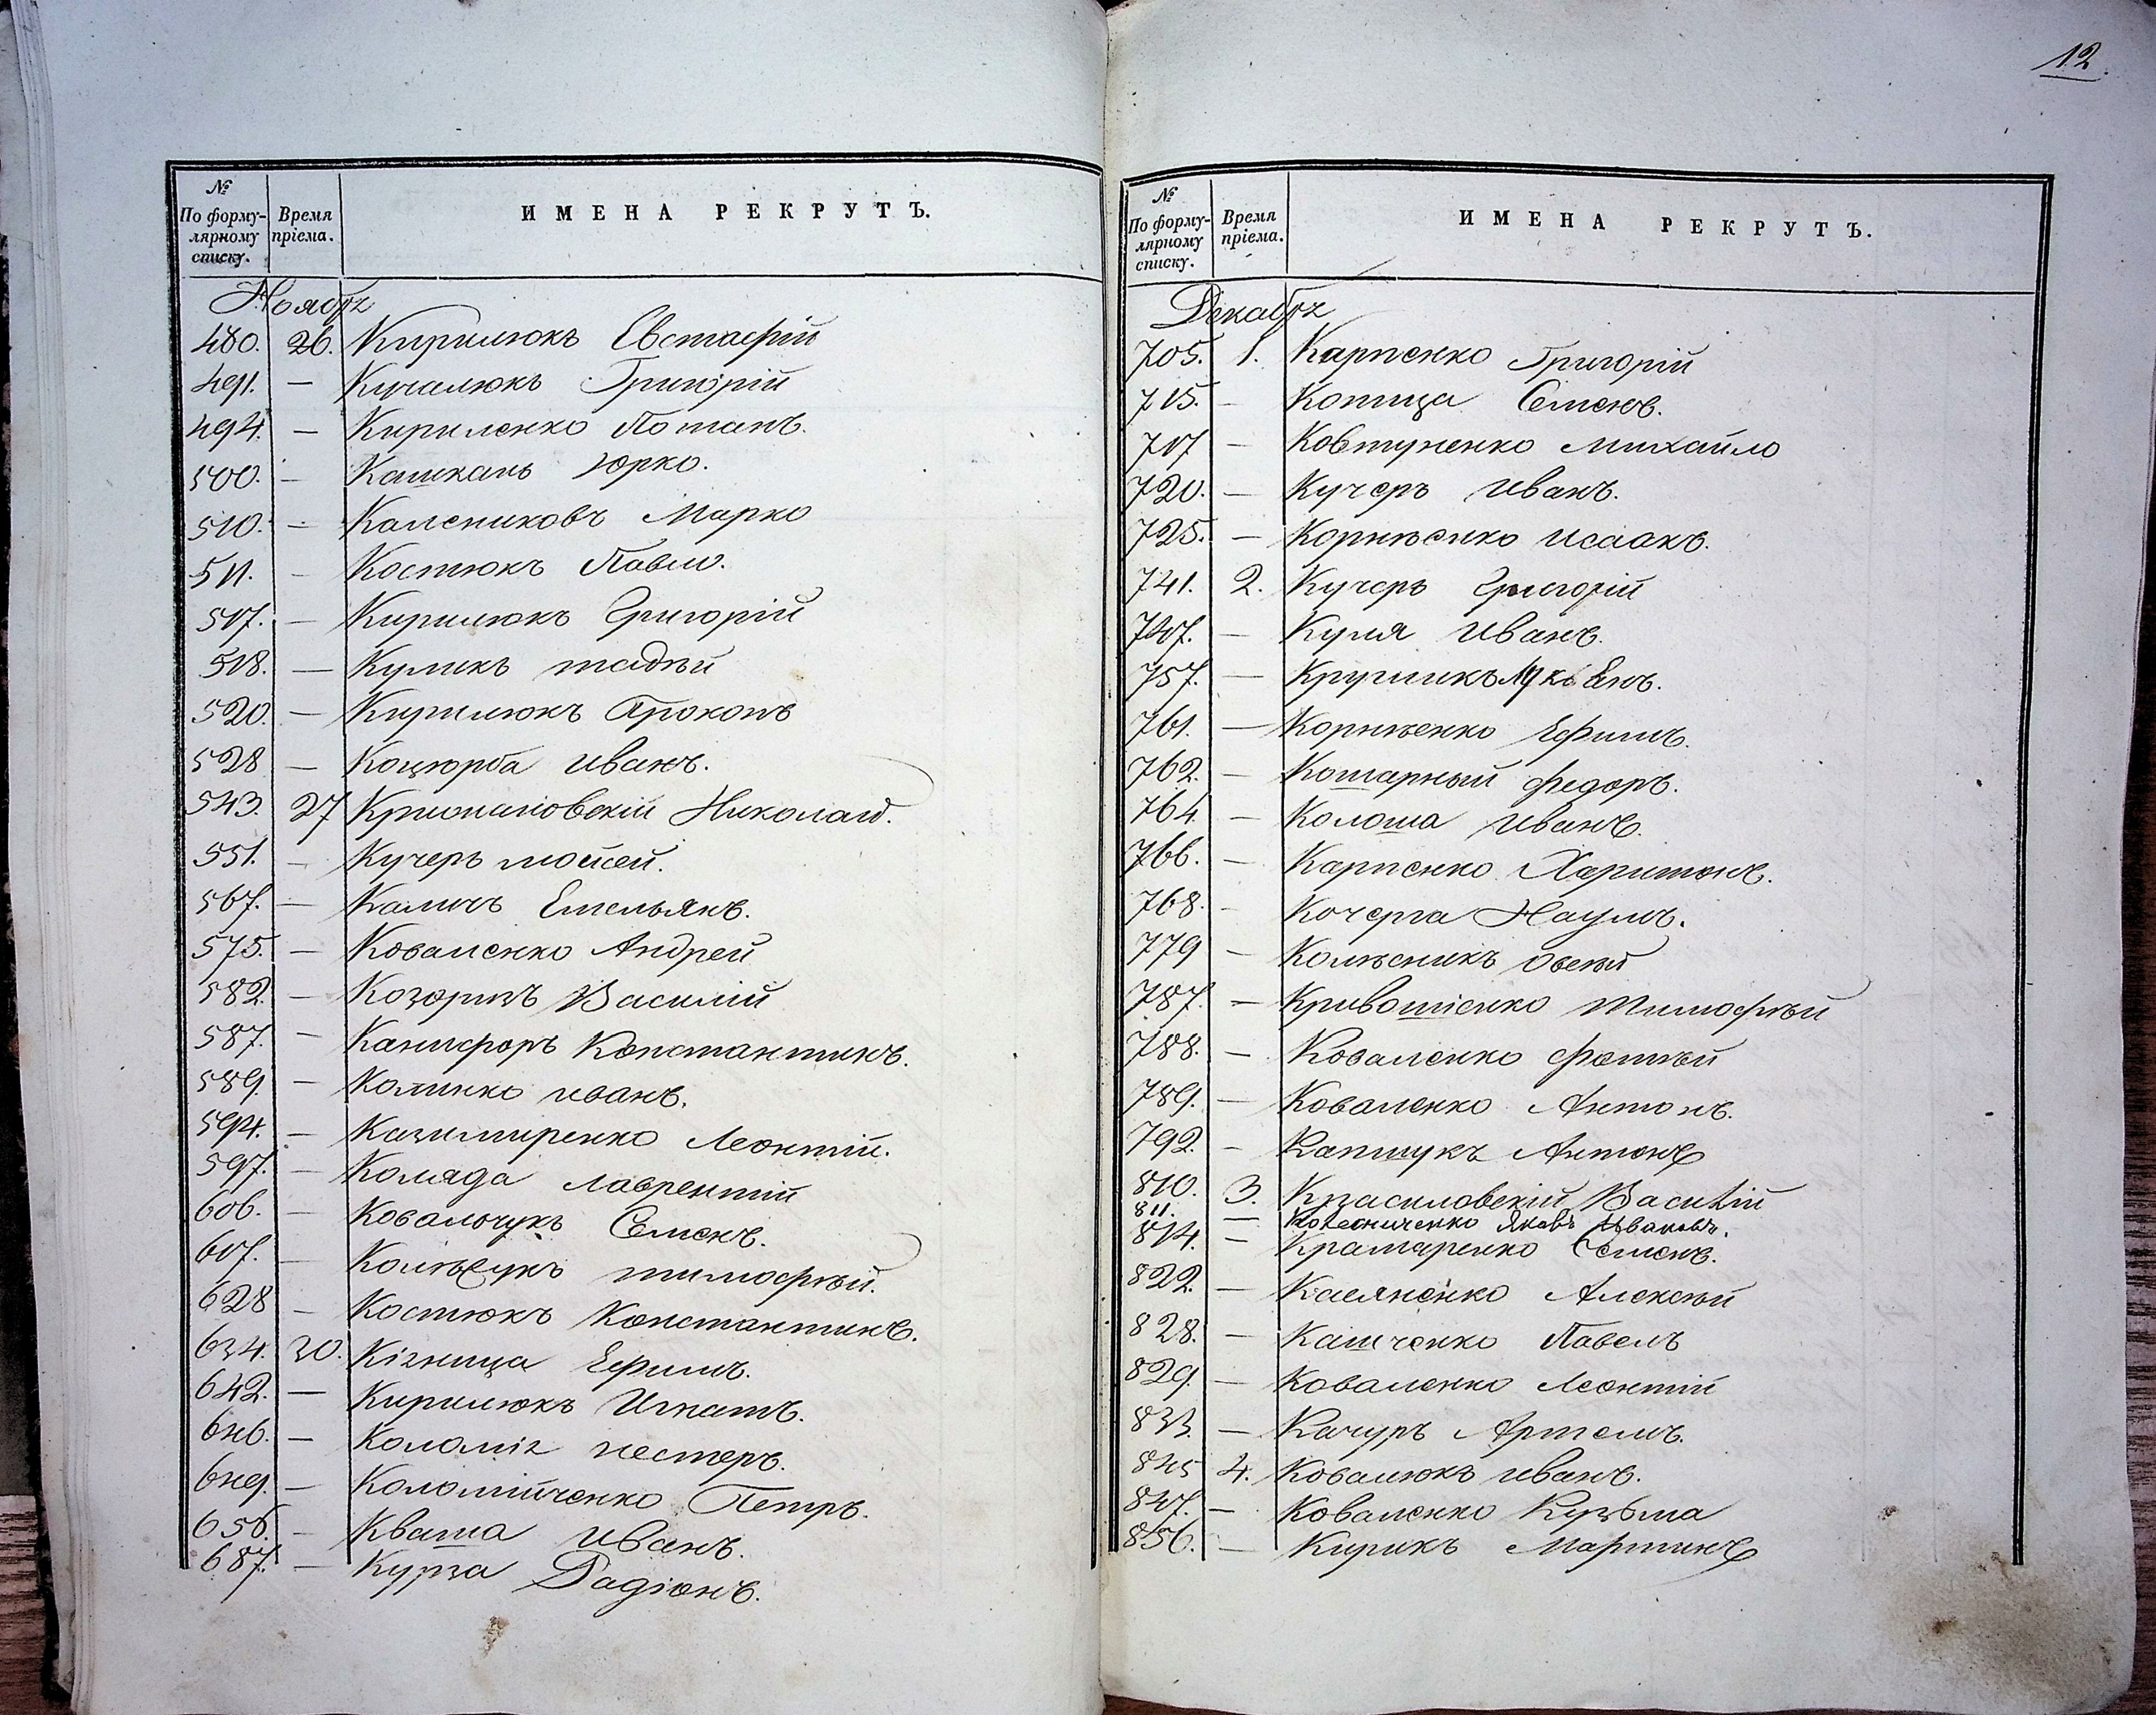 12.
№ По формулярному списку. Время пріема. ИМЕНА РЕКРУТЪ.
Ноябрь
480. 26. Кирилюкъ Евстафій
491. — Кучалюкъ Григорій
494. — Кириленко Потапъ.
500. — Кашканъ Юрко.
510. — Калениковъ Марко
511. — Костюкъ Павло.
517. — Кирилюкъ Григорій
518. — Куликъ Тадѣй
520. — Кирилюкъ Прокопъ
528 — Коцюрба Иванъ.
543. 27 Николай.
551. — Кучеръ Мойсей.
567. — Каличъ Емельянъ.
575. — Коваленко Андрей
582. — Козоризъ Василій
587. — Канифоръ Константинъ.
589. — Калинко Иванъ.
594. — Казимиренко Леонтій.
597. — Коляда Лаврентій
606. — Ковальчукъ Семенъ.
607. — Тимофѣй.
628 — Костюкъ Константинъ.
634. 30. Кізница Ефимъ.
642. — Кирилюкъ Игнатъ.
646. — Коломіг Нестеръ.
649. — Коломійченко Петръ.
656. — Кваша Иванъ.
687. — Курза Радіонъ.
№ По формулярному списку. Время пріема. ИМЕНА РЕКРУТЪ.
Декабрь
705. 1. Карпенко Григорій
715. — Копица Семенъ.
717 — Ковтуненко Михайло
720. — Кучеръ Иванъ.
725. — Корнѣенко Исаакъ.
741. 2. Кучеръ Григорій
747. — Куля Иванъ.
757. — Кругликъ Лукъенъ.
761. — Корнѣенко Ефимъ.
762. — Кошарный Федоръ.
764 — Колоша Иванъ.
766. — Карпенко Харитонъ.
768. — Кочерга Наумъ.
779 — Колѣсникъ Овсѣй
787. — Кривошіенко Тимофѣй
788. — Коваленко Фотѣй
789. — Коваленко Антонъ.
792. — Капшукъ Антонъ
810. 3. Красиловскій Василій
811. — Колесниченко Яковъ Ивановъ.
814. — Крамаренко Семенъ.
822. — Касяненко Алексѣй
828. — Кашченко Павелъ
829. — Коваленко Леонтій
833. — Качуръ Артемъ.
845 4. Ковалюкъ Иванъ.
847. — Коваленко Кузьма
856. — Кирикъ Мартинъ